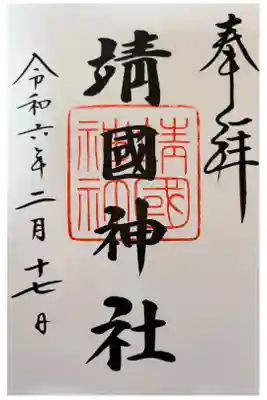 奉拝
靖國神社
靖國神社
令和六年二月十七日